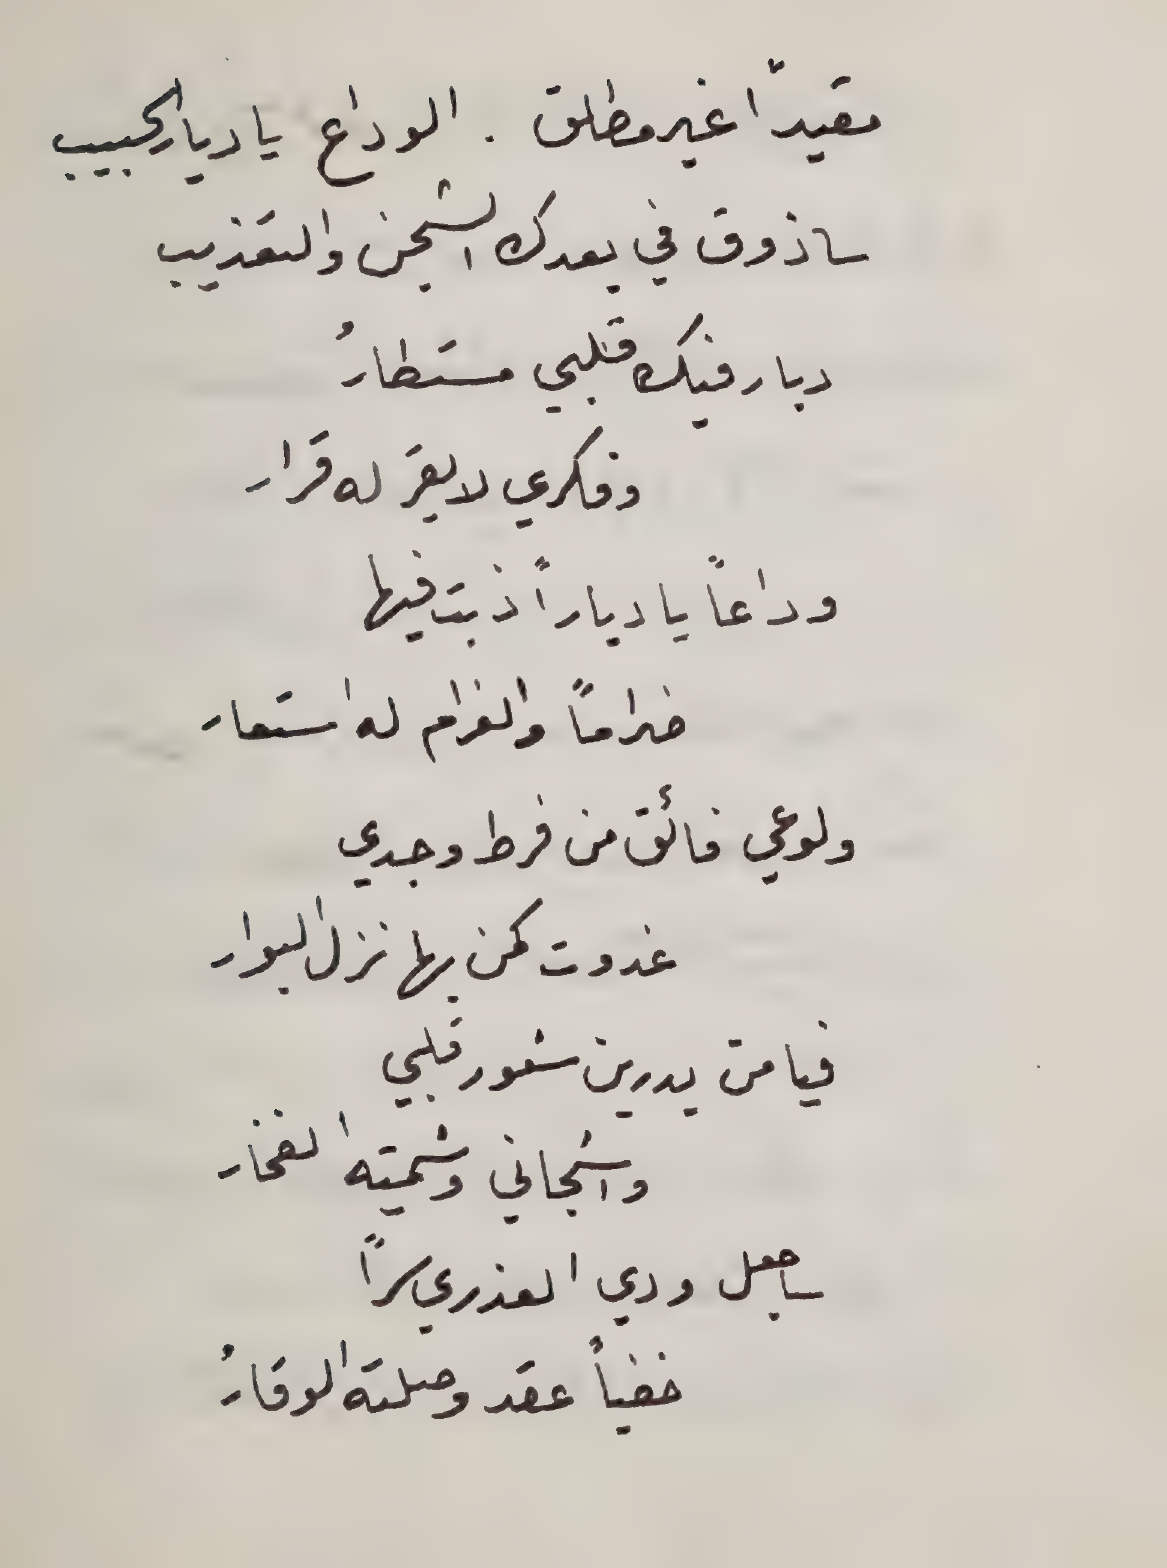 مقيدًا غير مطلق . الوداع يا ديار الحبيب
ساذوق في بعدك الشجن والتعذيب
ديار فيك قلبي مستطارُ
وفكري لا يقر له قرار
وداعاً يا دياراً ذبت فيها
غراماً والغرام له استعار
ولوعي فائق من فرط وجدي
غدوت كمن بها نزل البوار
فيا من يدرين شعور قلبي
واشجاني وشميته الفخار
ساجعل ودي العذري سراً
خفياً عقد وصلته الوقارُ